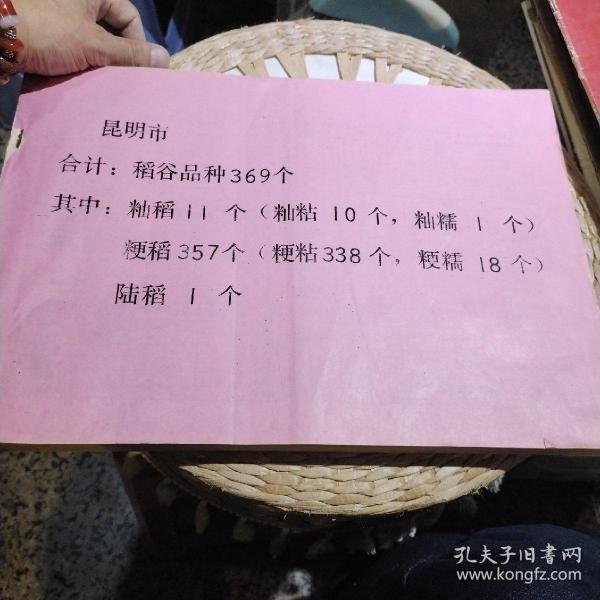 昆明市
合计：稻谷品种369个
其中：籼稻11个（籼粘10个，籼糯1个）
粳稻357个（粳粘338个，粳糯18个）
陆稻1个
孔夫子旧书网
www.kongfz.com